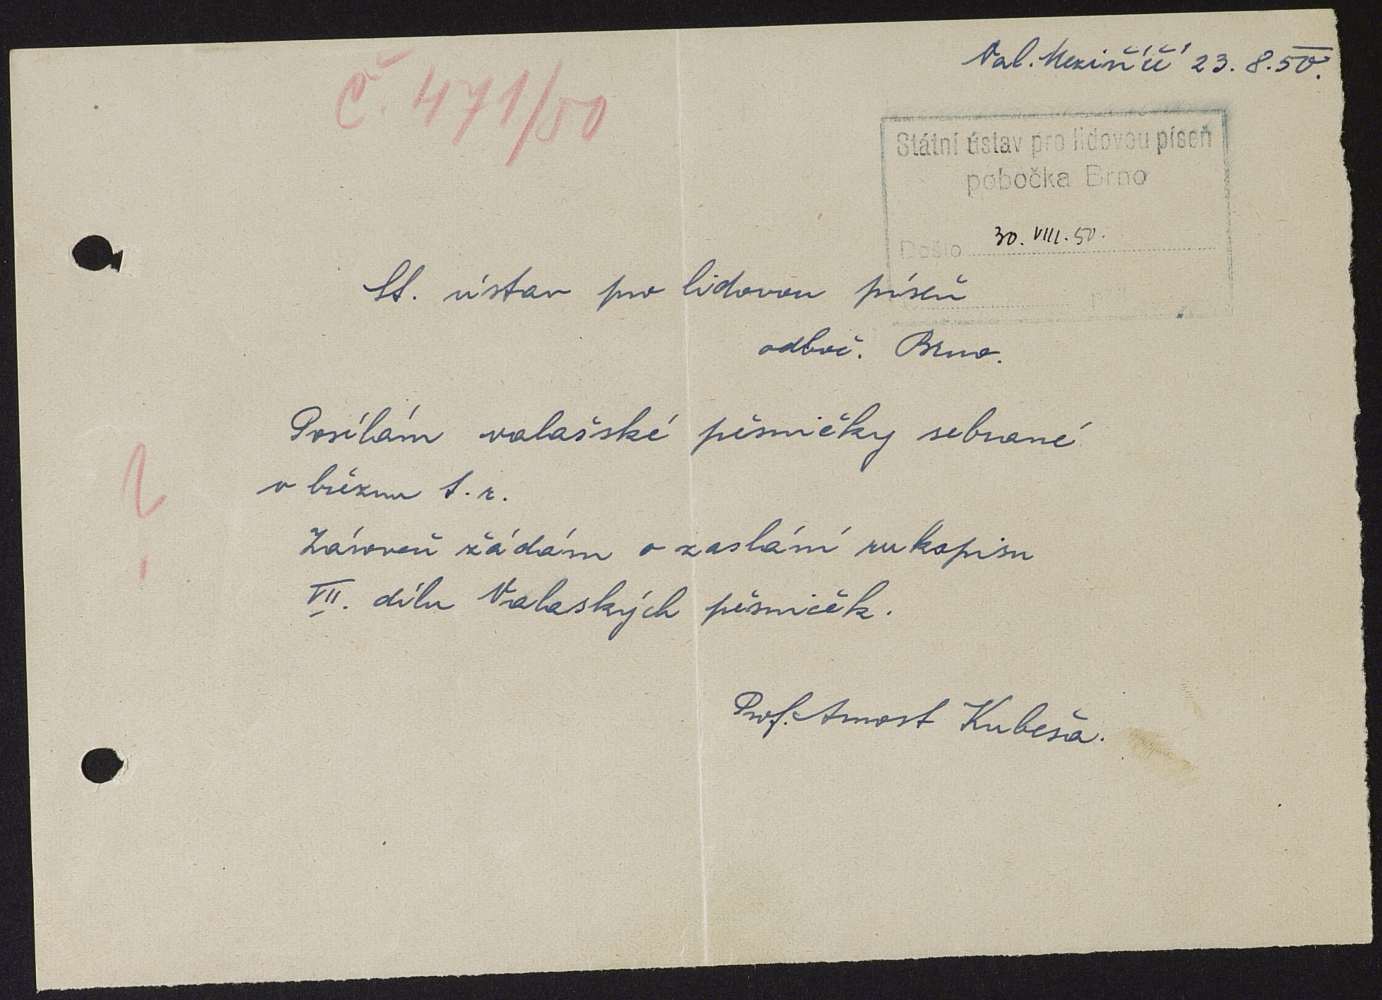 Val. Meziříčí 23. 8. 50.
Č. 471/50
Státní ústav pro lidovou píseň
pobočka Brno
Došlo 30. VIII. 50.
St. ústav pro lidovou píseň
odboč. Brno.
Posílám valašské písničky sebrané
v březnu t. r.
Zároveň žádám o zaslání rukopisu
VII. dílu Valaských písniček.
Prof. Arnošt Kubeša.